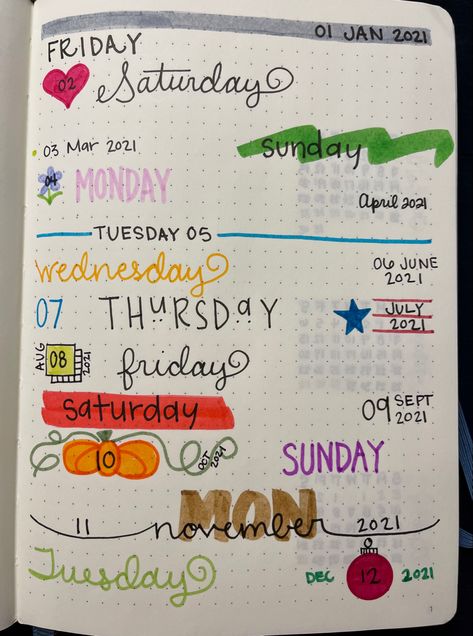 01 JAN 2021
FRIDAY
02 Saturday
03 Mar 2021
sunday
04 MONDAY
April 2021
TUESDAY 05
wednesday
06 JUNE
2021
07 THURSDAY
JULY
2021
AUG 08 2021
friday
saturday
09 SEPT
2021
10 OCT 2021
SUNDAY
MON
11 november 2021
Tuesday
DEC 12 2021